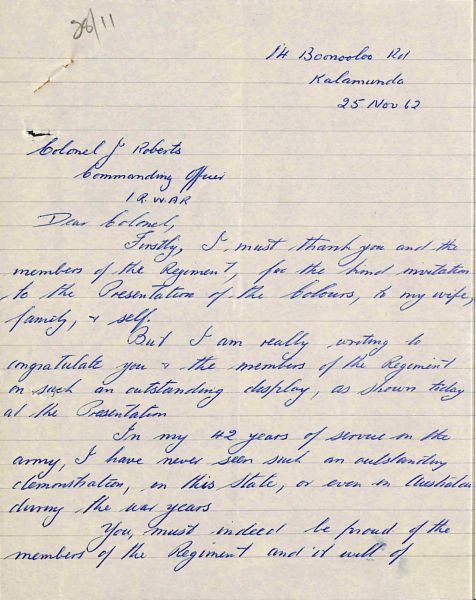 28/11
14 Boonooloo Rd
Kalamunda
25 Nov 62
Colonel J Roberts
Commanding Officer
1 R.W.A.R
Dear Colonel,
Firstly, I must thank you and the
members of the Regiment, for the kind invitation
to the Presentation of the Colours, to my wife,
family, & self.
But I am really writing to
congratulate you & the members of the Regiment
on such an outstanding display, as shown today
at the Presentation
In my 42 years of service in the
army, I have never seen such an outstanding
demonstration, in this State, or even in Australia
during the war years
You, must indeed be proud of the
members of the Regiment and it will of